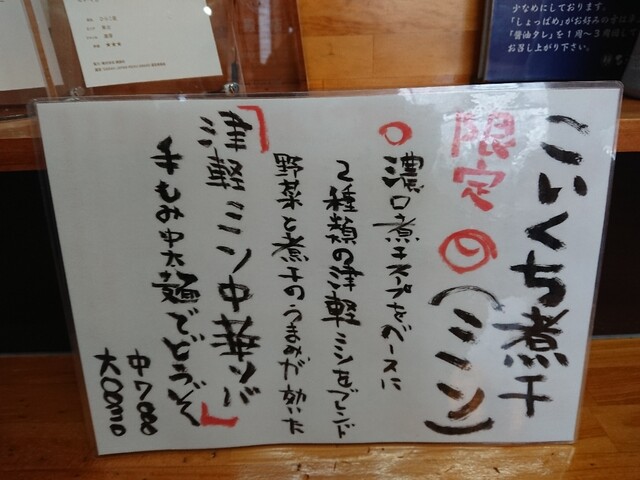 少なめにしております。
「しょっぱめ」がお好みの方は
「醤油タレ」を1周～3周回して
お召し上がり下さい。
こいくち煮干
限定 の (ミソ)
○濃口煮干スープをベースに
2種類の津軽ミソをブレンド
野菜と煮干のうまみが効いた
「津軽ミソ中華ソバ」
手もみ中太麺でどうぞ
中
大